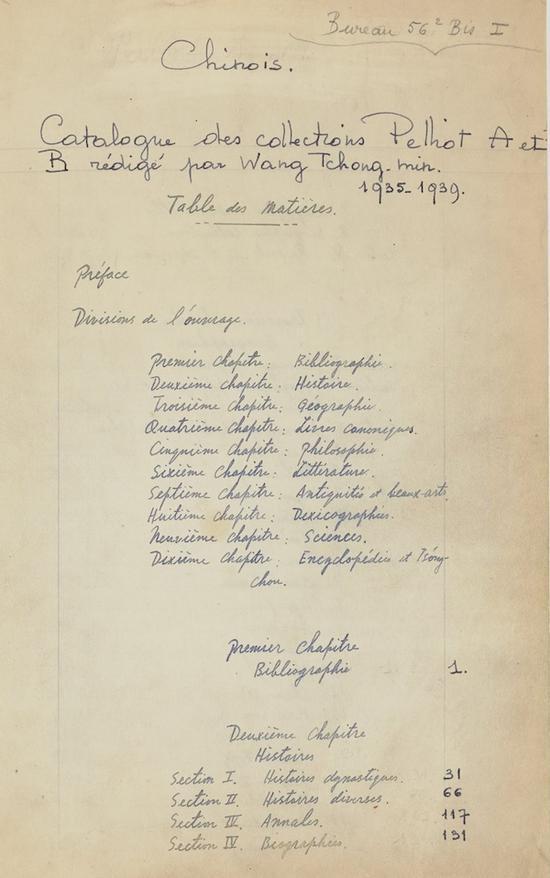 Bureau 56² Bis I
Chinois.
Catalogue des collections Pelliot A et
B rédigé par Wang Tchong-min.
1935-1939.
Table des matières.
Préface
Divisions de l'ouvrage.
Premier chapitre: Bibliographie.
Deuxième chapitre: Histoire.
Troisième chapitre: Géographie.
Quatrième chapitre: Livres canoniques.
Cinquième chapitre: Philosophie.
Sixième chapitre: Littérature.
Septième chapitre: Antiquités et beaux-arts.
Huitième chapitre: Lexicographies.
Neuvième chapitre: Sciences.
Dixième chapitre: Encyclopédies et Ts'ong-
chou.
Premier chapitre
Bibliographie 1.
Deuxième chapitre
Histoires
Section I. Histoires dynastiques. 31
Section II. Histoires diverses. 66
Section III. Annales. 117
Section IV. Biographies. 131